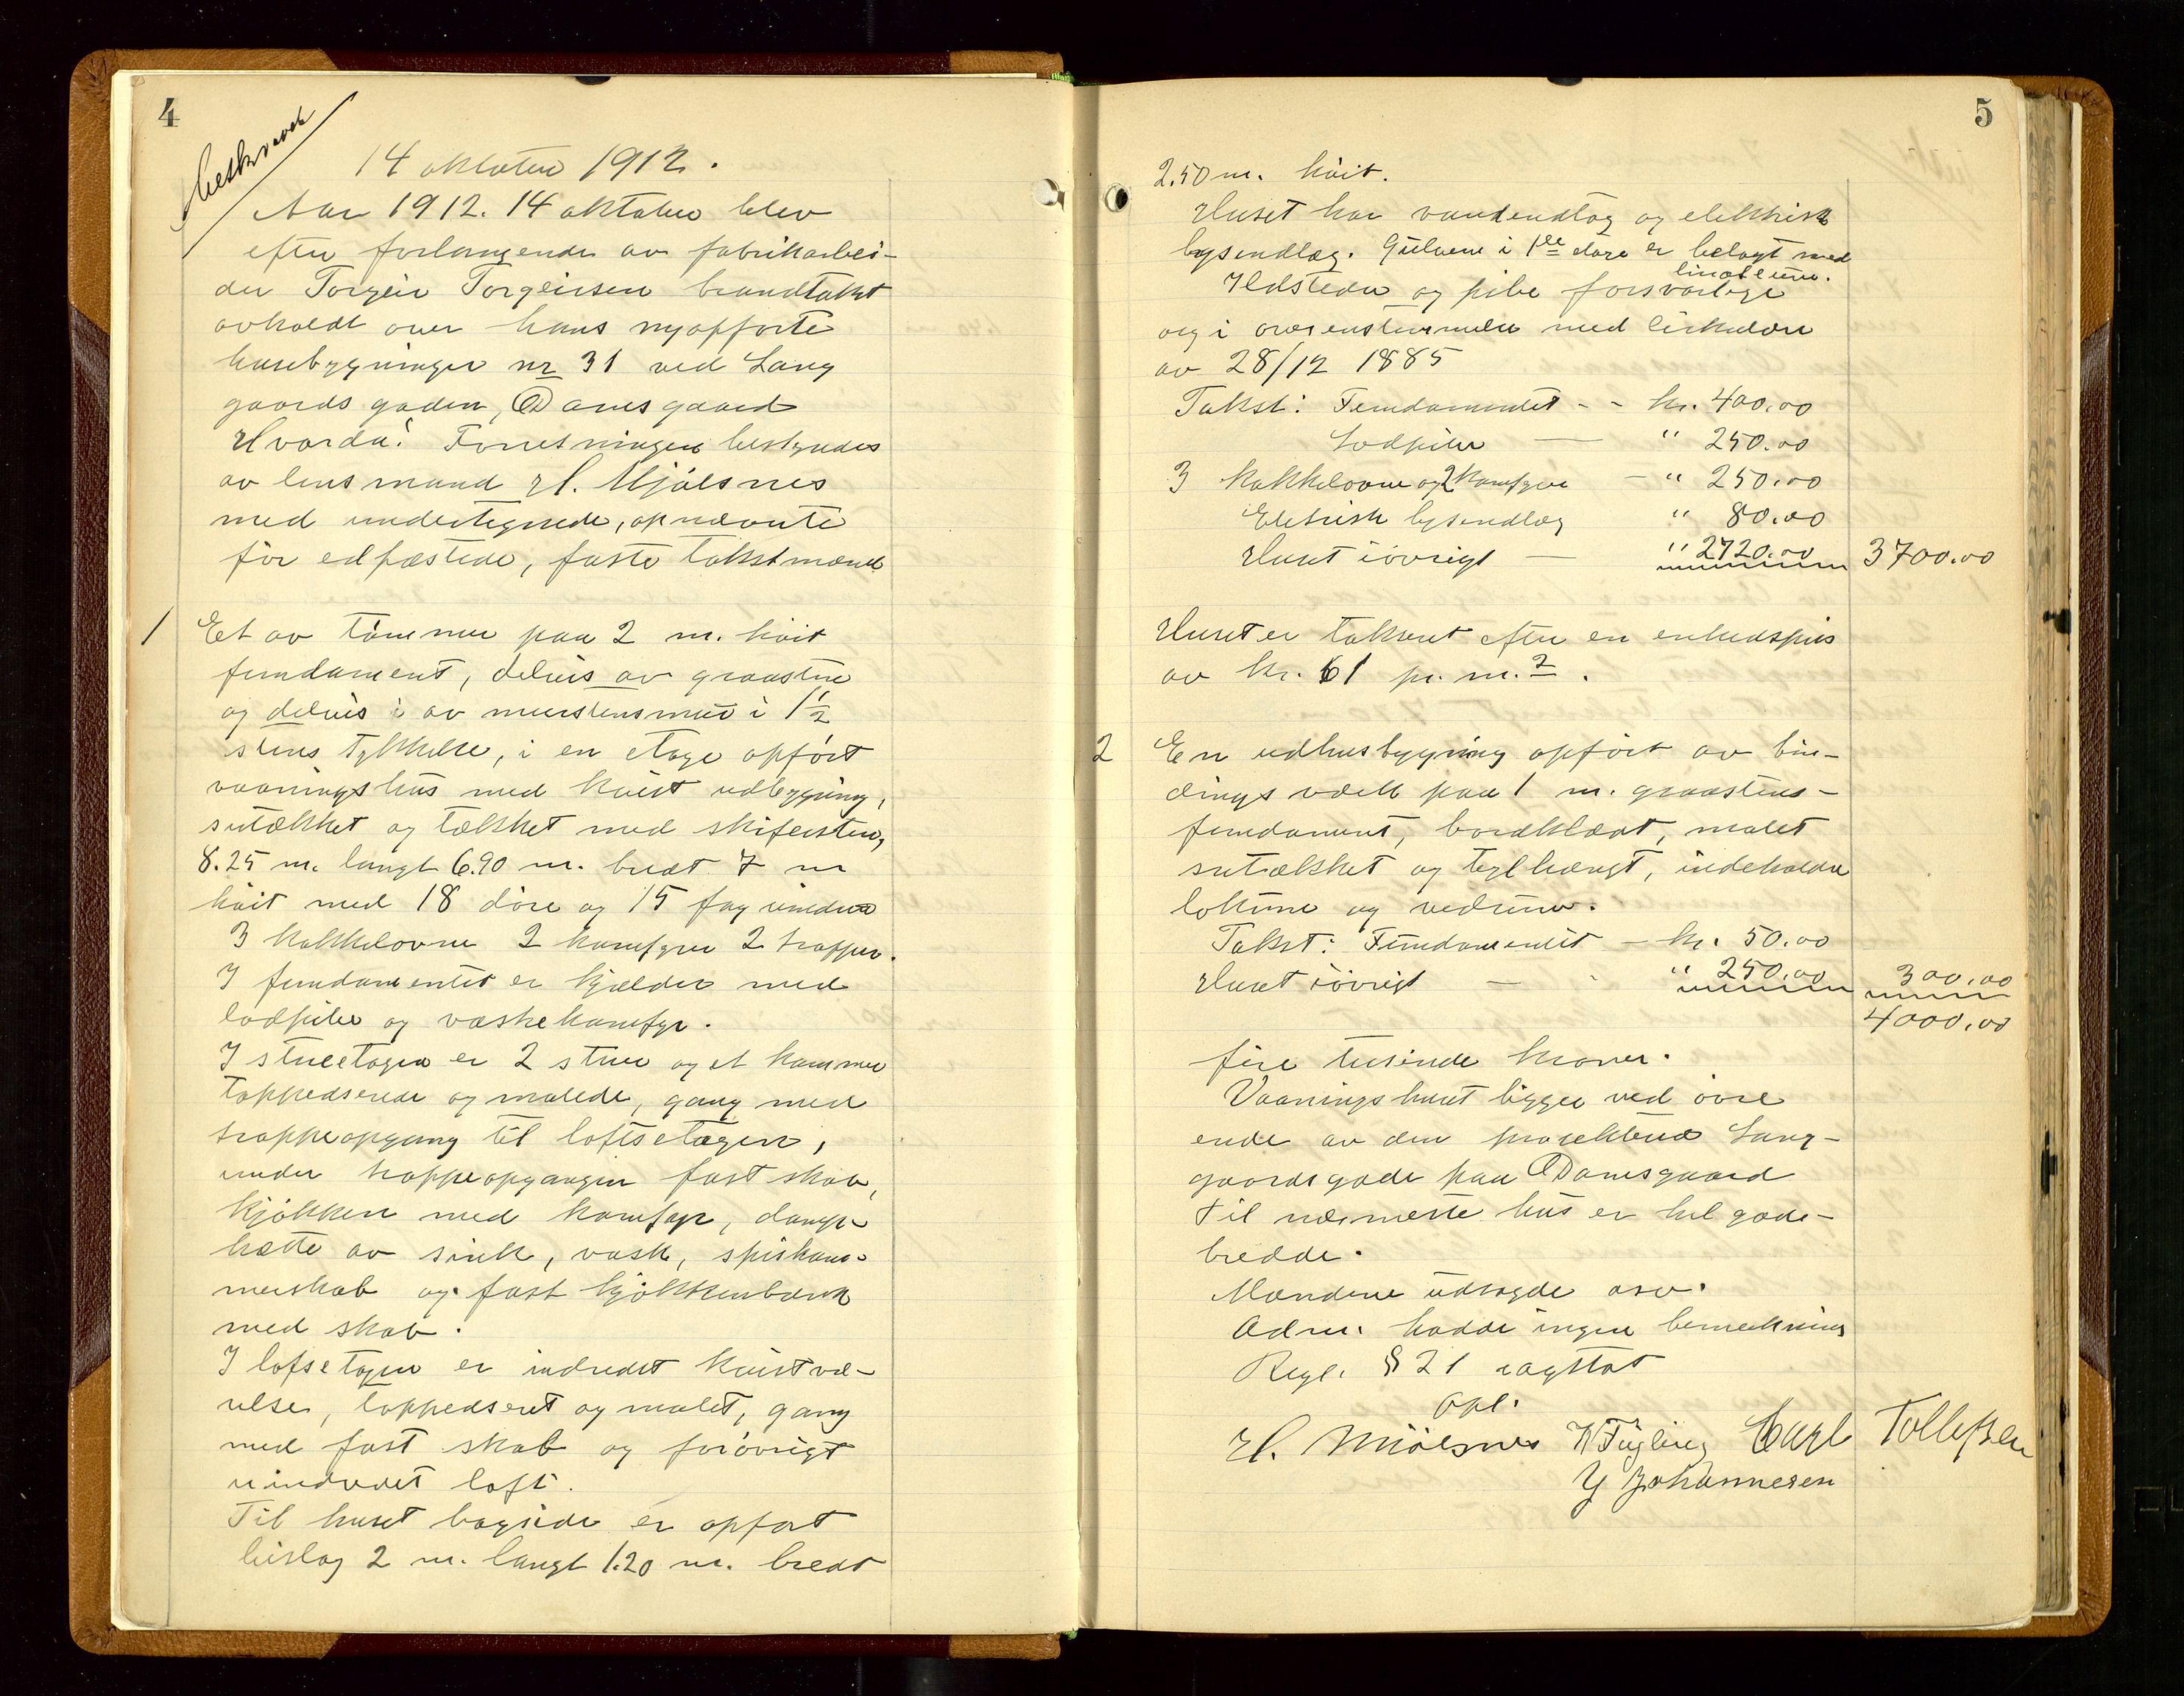 4
beskrevet
14 oktober 1912.
Aar 1912. 14 oktober blev
efter forlangende av fabrikarbei-
der Torgeir Torgeirsen brandtakst
avholdt over hans nyopførte
husebygninger nr 31 ved Lang
gaards gaden, Damsgaard
Hvorda! Forretningen bestyredes
av lensmand H. Mjølsnes
med undertegnede, opnævnte
før edfæstede, faste takstmænd
1 Et av tømmer paa 2 m. høit
fundament, delvis av graasten
og delvis i av murstensmur i 1½
stens tykkelse, i en etage opført
vaaningshus med kvist udbygning,
sutækket og tækket med skifersten,
8.25 m. langt 6.90 m. bredt 7 m
høit med 18 døre og 15 fag vinduer
3 kakkelovne 2 komfyrer 2 trapper.
I fundamentet er kjælder med
lodpibe og vaskekomfyr.
I stueetagen er 2 stuer og et kammer
tappedserede og malede, gang med
trappeopgang til loftsetagen,
under trappeopgangen fast skab,
kjøkken med komfyr, damp-
hætte av sink, vask, spiskam-
merskab og fast kjøkkenbænk
med skab.
I lofsetagen er indredet kvistvæ-
relse, tappedseret og malet, gang
med fast skab og forøvrigt
uindredet loft.
Til huset bagside er opført
bislag 2 m. langt 1.20 m. bredt
5
2.50 m. høit.
Huset har vandindlæg og elektrisk
lysindlæg. Gulvene i 1ste etage er belagt med
linoleum.
Ildsteder og pibe forsvarlige
og i overensstemmelse med cirkulære
av 28/12 1885
Takst: Fundamentet - - kr. 400.00
Lodpibe — " 250.00
3 kakkelovne og 2 komfyrer - " 250.00
Elektrisk lysindlæg " 80.00
Huset iøvrigt — " 2720.00 3700.00
Huset er takseret efter en enhedspris
av kr. 61 pr. m.2.
2 En udhusbygning opført av bin-
dingsværk paa 1 m. graastens-
fundament, bordklædt, malet
sutækket og teglhængt, indeholder
lokum og vedrum.
Takst: Fundamentet — kr. 50.00
Huset iøvrigt — " 250.00 300.00
4000.00
fire tusinde kroner.
Vaaningshuset ligger ved øvre
ende av den prosekterede Lang-
gaardsgade paa Damsgaard
Til nærmeste hus er hel gade-
bredde.
Mændene udsagde osv.
Adm. hadde ingen bemerkning
Regl. § 21 iagttat
Opl.
H. Mjølsnes K Fugling Carl Tollefsen
Y Johannesen